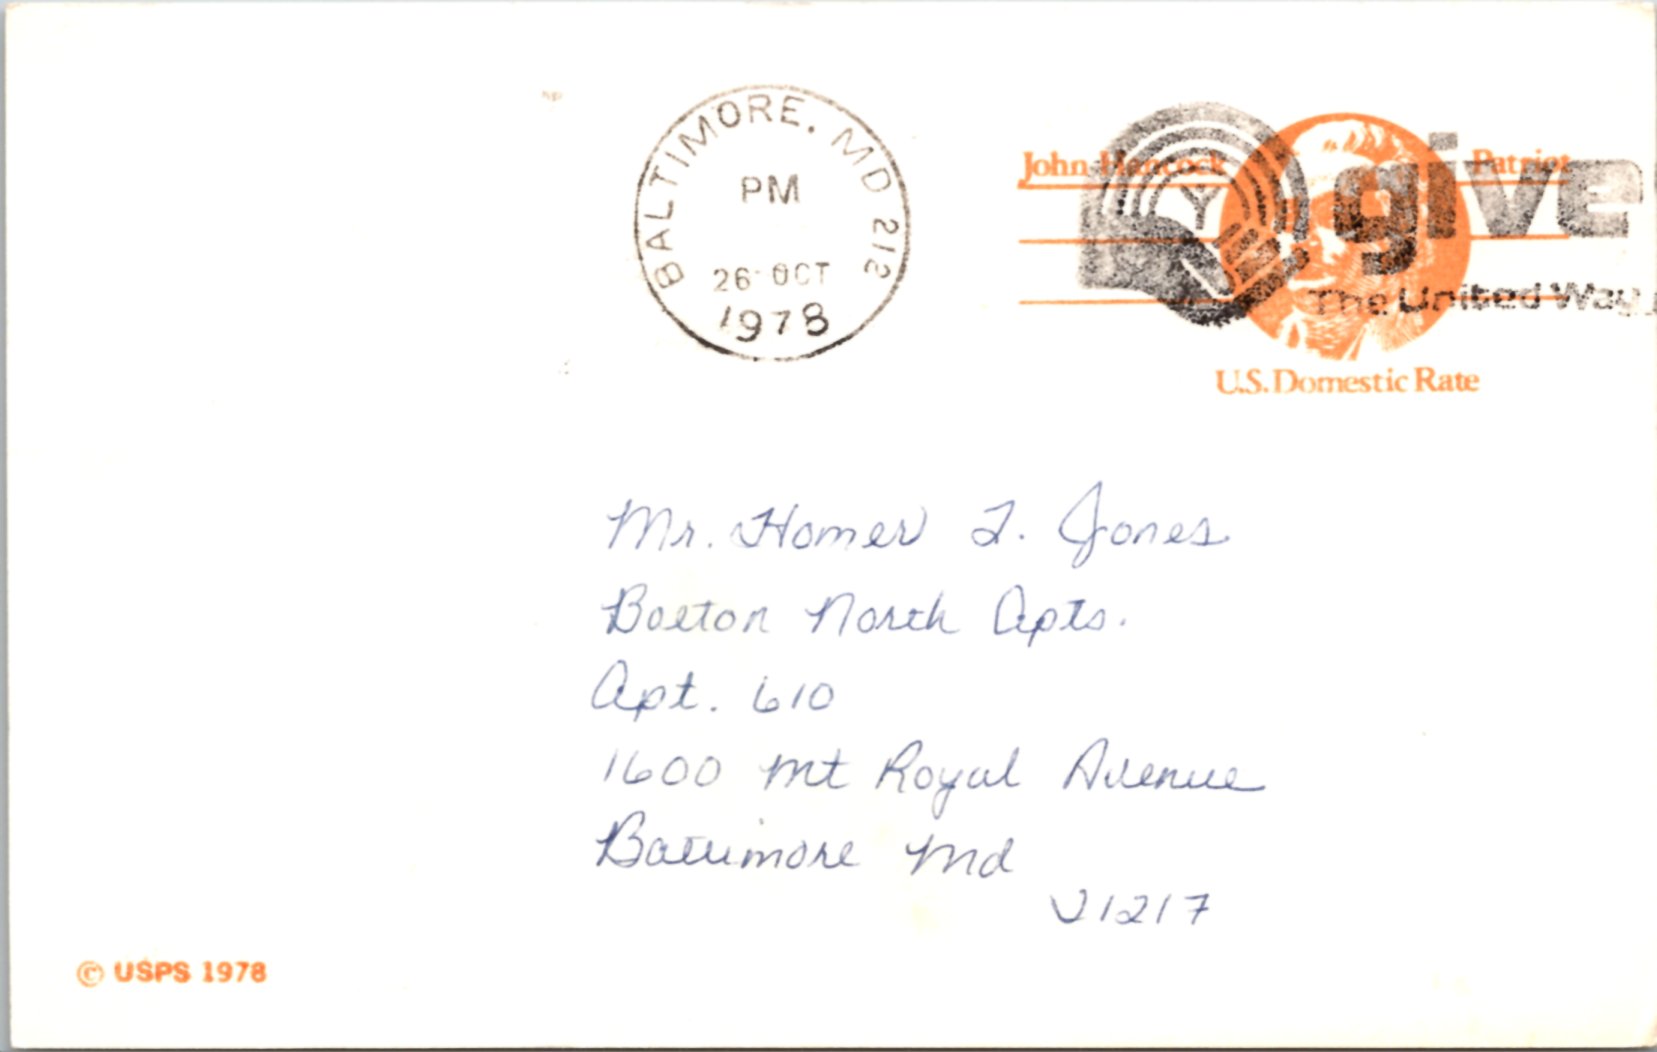 BALTIMORE, MD 212
PM
26 OCT
1978
John Hancock Patriot
give
The United Way
U.S. Domestic Rate
Mr. Homer I. Jones
Bolton North Apts.
Apt. 610
1600 Mt Royal Avenue
Baltimore Md
21217
© USPS 1978